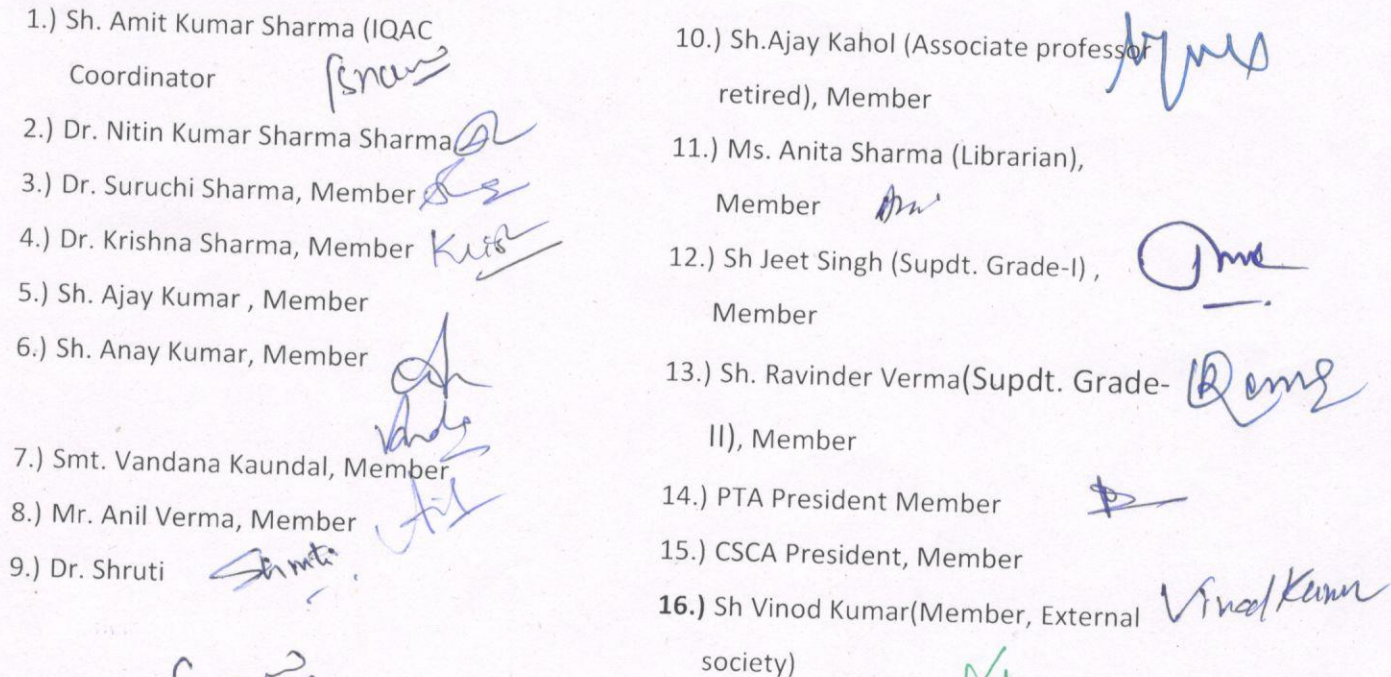 1.) Sh. Amit Kumar Sharma (IQAC
Coordinator
2.) Dr. Nitin Kumar Sharma Sharma
3.) Dr. Suruchi Sharma, Member
4.) Dr. Krishna Sharma, Member
5.) Sh. Ajay Kumar , Member
6.) Sh. Anay Kumar, Member
7.) Smt. Vandana Kaundal, Member
8.) Mr. Anil Verma, Member
9.) Dr. Shruti Shruti
10.) Sh.Ajay Kahol (Associate professor
retired), Member
11.) Ms. Anita Sharma (Librarian),
Member
12.) Sh Jeet Singh (Supdt. Grade-I) ,
Member
13.) Sh. Ravinder Verma(Supdt. Grade-
II), Member
14.) PTA President Member
15.) CSCA President, Member
16.) Sh Vinod Kumar(Member, External Vinod Kumar
society)